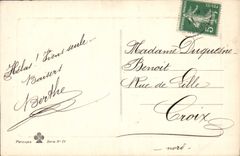 Hélas ! Suis seule.
Baisers
Berthe
Madame Duquesne
Benoit
Rue de Lille
Croix
nord.
5
Série N°